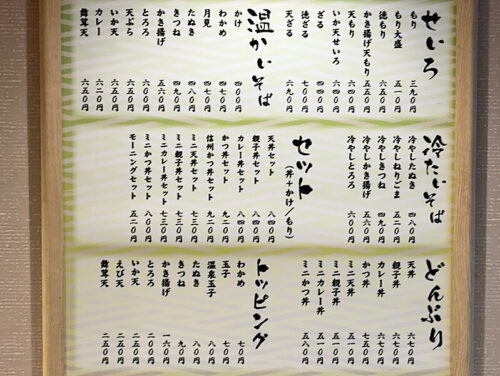 せいろ
もり 三九〇円
もり大盛
徳もり
かき揚げ天もり 五五〇円
天もり 六四〇円
いか天せいろ
ざる
徳ざる
天ざる 六九〇円
温かいそば
かけ
わかめ 四七〇円
月見 四七〇円
たぬき 四八〇円
きつね 四九〇円
かき揚げ 五六〇円
とろろ 六〇〇円
天ぷら 六五〇円
いか天 六五〇円
カレー 六一〇円
舞茸天 六五〇円
冷たいそば
冷やしたぬき 四八〇円
冷やしねりごま 五二〇円
冷やしきつね 四九〇円
冷やしかき揚げ 五六〇円
冷やしとろろ 六〇〇円
セット
（丼＋かけ／もり）
天丼セット 八四〇円
親子丼セット 八四〇円
カレー丼セット 八四〇円
かつ丼セット 九二〇円
信州かつ丼セット 九二〇円
ミニ天丼セット 七三〇円
ミニ親子丼セット 七三〇円
ミニカレー丼セット 七三〇円
ミニかつ丼セット 八〇〇円
モーニングセット 五二〇円
どんぶり
天丼 六七〇円
親子丼 六七〇円
カレー丼 六七〇円
かつ丼 七五〇円
ミニ天丼 五一〇円
ミニ親子丼 五一〇円
ミニカレー丼 五一〇円
ミニかつ丼 五八〇円
トッピング
わかめ 七〇円
玉子 七〇円
温泉玉子 八〇円
たぬき 八〇円
きつね 九〇円
かき揚げ 一六〇円
とろろ 二〇〇円
いか天 二五〇円
えび天 二五〇円
舞茸天 二五〇円